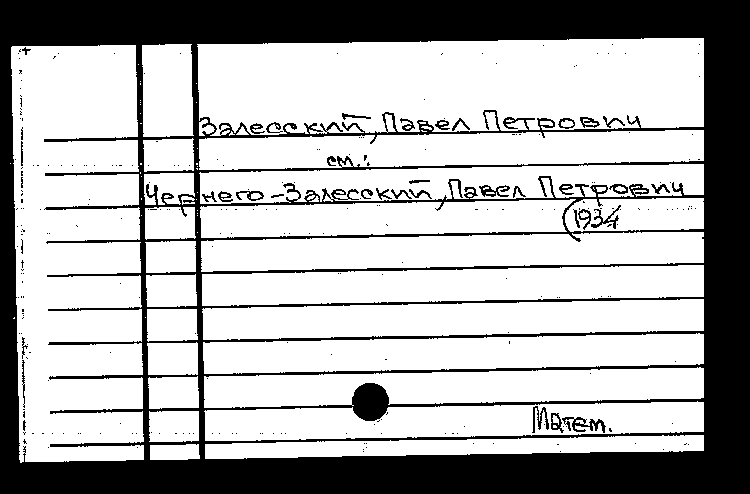 Залесский, Павел Петрович
см.:
Чернего-Залесский, Павел Петрович
(1934
Матем.